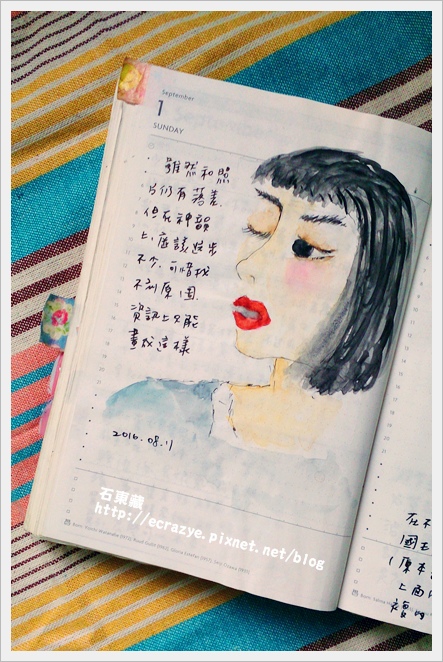 September
1
SUNDAY
雖然和照
片仍有落差
但在神韻
上應該進步
不少,可惜找
不到原圖.
資訊上只能
畫成這樣
2016.08.11
石東藏
http://ecrazye.pixnet.net/blog
在不
(原本
上面